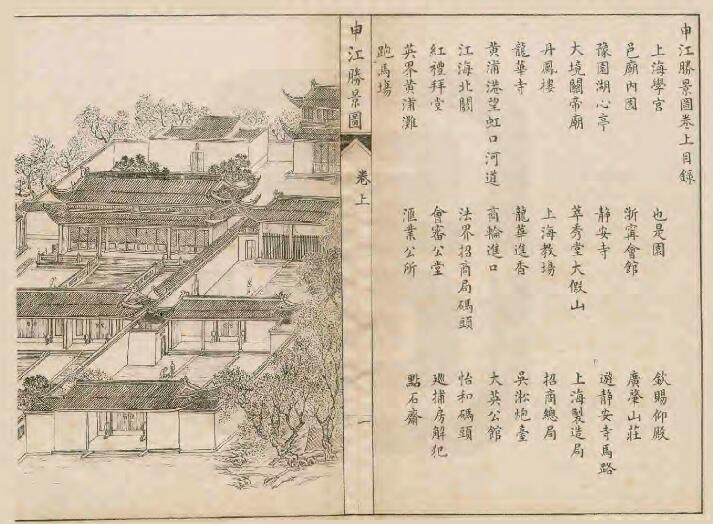 申江勝景圖卷上目錄
上海學宮 也是園 欽賜仰殿
邑廟內園 浙寧會館 廣肇山莊
豫園湖心亭 靜安寺 遊靜安寺馬路
大境關帝廟 萃秀堂大假山 上海製造局
丹鳳樓 上海教場 招商總局
龍華寺 龍華進香 吳淞炮臺
黃浦港望虹口河道 商輪進口 大英公館
江海北關 法界招商局碼頭 怡和碼頭
紅禮拜堂 會審公堂 巡捕房解犯
英界黃浦灘 滙業公所 點石齋
跑馬場
申江勝景圖 卷上 一